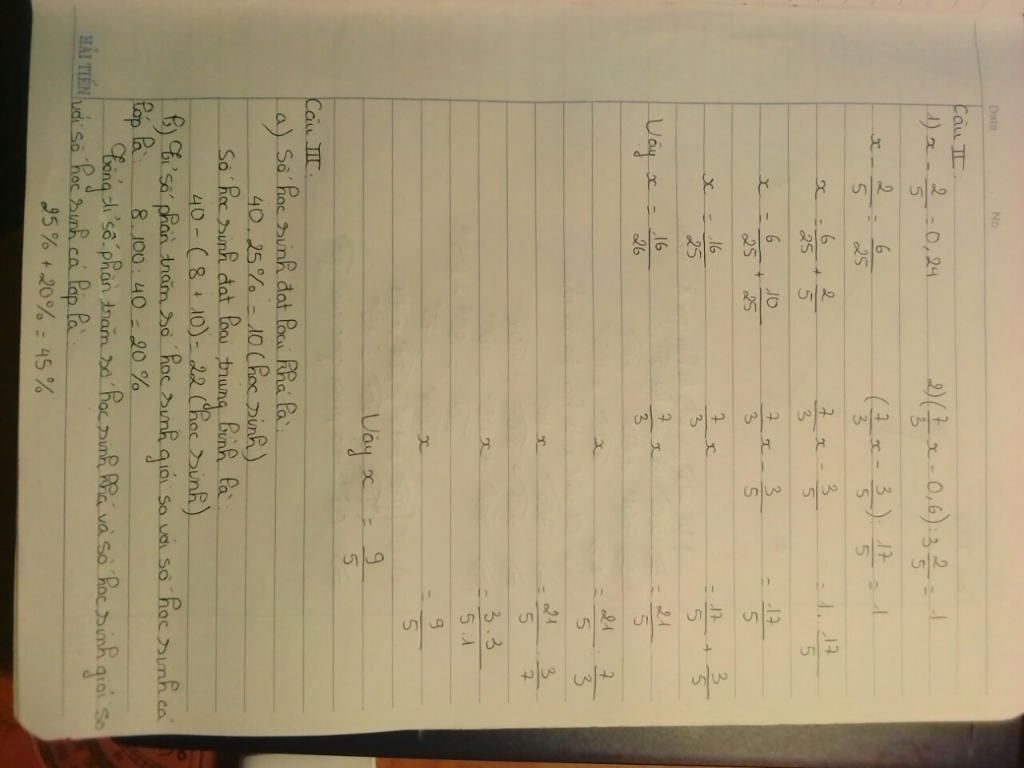 Date
No
Câu II:
1) x - 2/5 = 0,24
x - 2/5 = 6/25
x = 6/25 + 2/5
x = 6/25 + 10/25
x = 16/25
Vậy x = 16/26
2) (7/3 x - 0,6) : 3 2/5 = 1
(7/3 x - 3/5) : 17/5 = 1
7/3 x - 3/5 = 1 . 17/5
7/3 x - 3/5 = 17/5
7/3 x = 17/5 + 3/5
7/3 x = 21/5
x = 21/5 : 7/3
x = 21/5 . 3/7
x = 3.3/5.1
x = 9/5
Vậy x = 9/5
Câu III:
a) Số học sinh đạt loại khá là:
40 . 25% = 10 (học sinh)
Số học sinh đạt loại trung bình là:
40 - (8 + 10) = 22 (học sinh)
b) Tỉ số phần trăm số học sinh giỏi so với số học sinh cả
lớp là: 8 . 100 : 40 = 20%
Tổng tỉ số phần trăm số học sinh khá và số học sinh giỏi so
với số học sinh cả lớp là:
25% + 20% = 45%
HẢI TIẾN